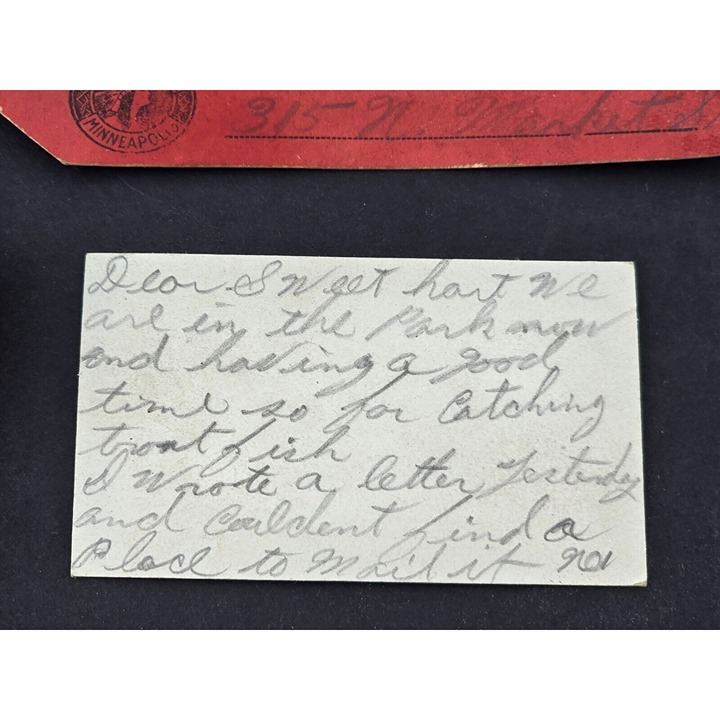 MINNEAPOLIS
315 N. Market
Dear Sweet hart we
are in the Park now
and having a good
time so far Catching
trout fish
I Wrote a letter yesterday
and Couldent find a
Place to Mail it